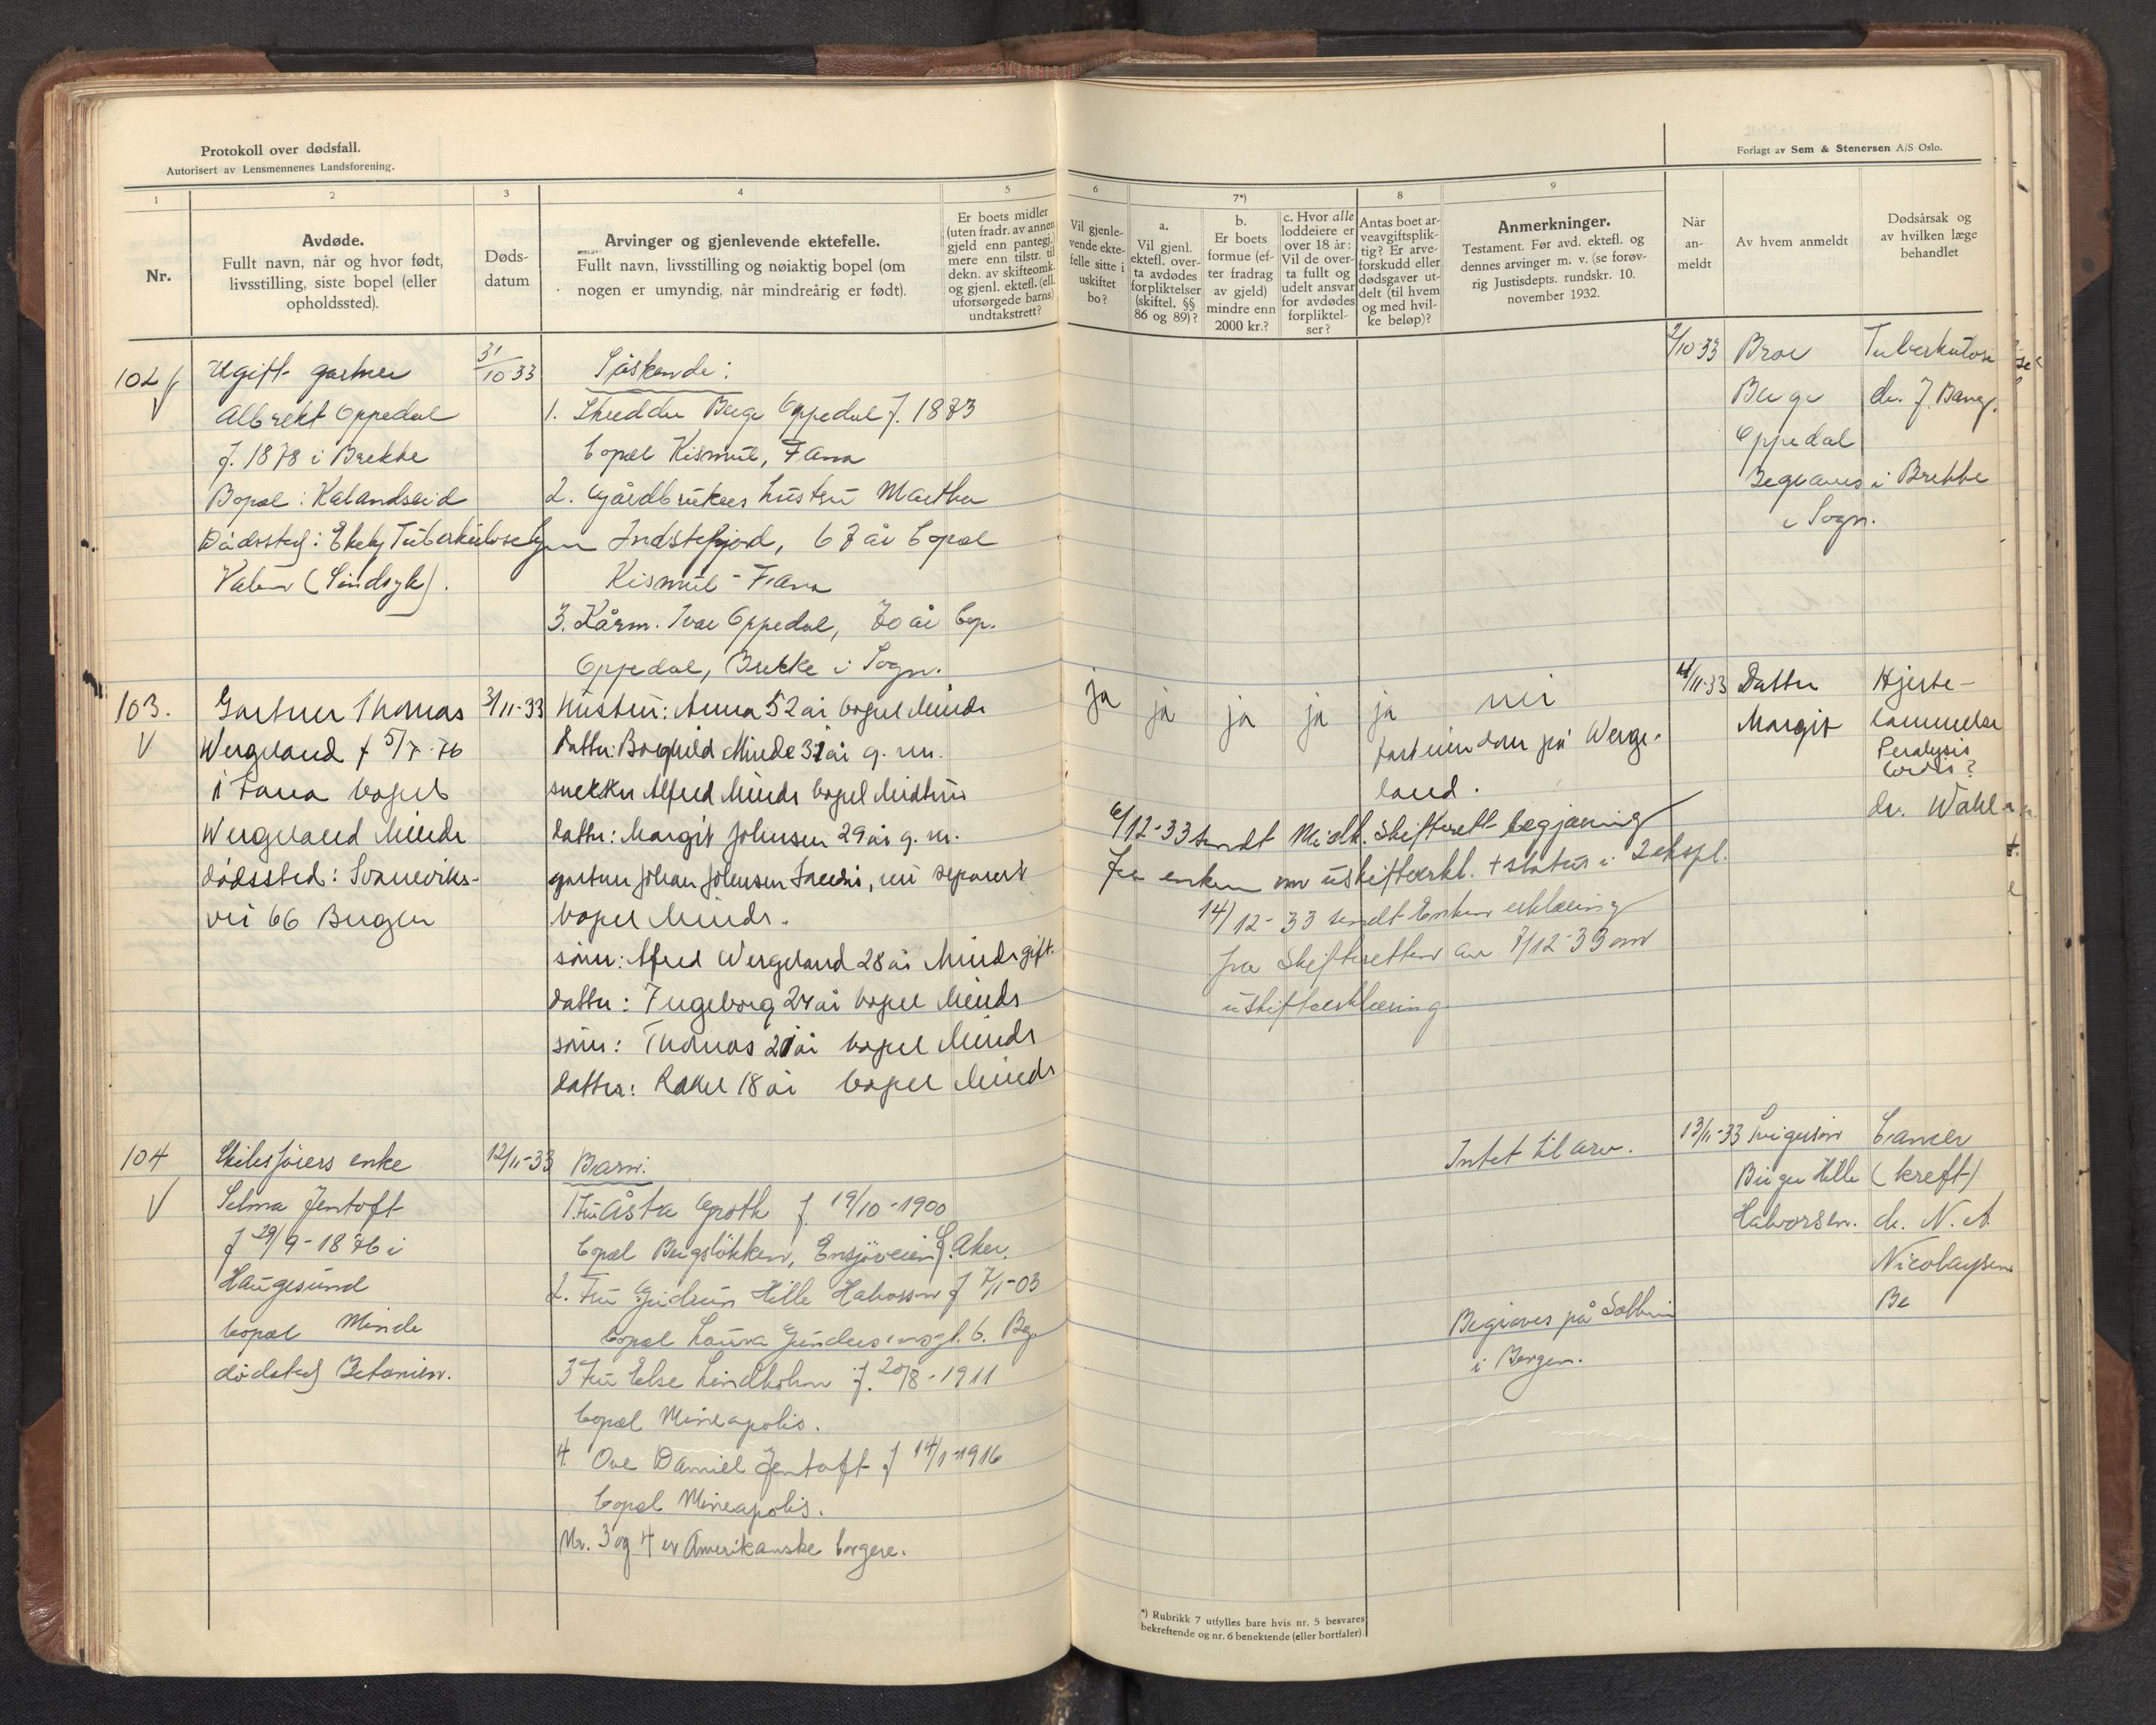 Protokoll over dødsfall.
Autorisert av Lensmennenes Landsforening.
Forlagt av Sem & Stenersen A/S Oslo.
1
2
3
4
5
6
7*)
8
9
Nr.
Avdøde.
Fullt navn, når og hvor født,
livsstilling, siste bopel (eller
opholdssted).
Døds-
datum
Arvinger og gjenlevende ektefelle.
Fullt navn, livsstilling og nøiaktig bopel (om
nogen er umyndig, når mindreårig er født).
Er boets midler
(uten fradr. av annen
gjeld enn pantegj.)
mere enn tilstr. til
dekn. av skifteomk.
og gjenl. ektef. (ell.
uforsørgede barns)
undtakstrett?
Vil gjenle-
vende ekte-
felle sitte i
uskiftet
bo?
a.
Vil gjenl.
ektefl. over-
ta avdødes
forpliktelser
(skiftel. §§
86 og 89)?
b.
Er boets
formue (ef-
ter fradrag
av gjeld)
mindre enn
2000 kr.?
c. Hvor alle
loddeiere er
over 18 år:
Vil de over-
ta fullt og
udelt ansvar
for avdødes
forpliktel-
ser?
Antas boet ar-
veavgiftsplik-
tig? Er arve-
forskudd eller
dødsgaver ut-
delt (til hvem
og med hvil-
ke beløp)?
Anmerkninger.
Testament. Før avd. ektefl. og
dennes arvinger m. v. (se forøv-
rig Justisdepts. rundskr. 10.
november 1932.
Når
an-
meldt
Av hvem anmeldt
Dødsårsak og
av hvilken læge
behandlet
102
Ugift gartner
Albrekt Oppedal
f. 1878 i Brekke
Bopæl: Kalandseid
Dødssted: Ekely Tuberkulosehjem
Valen (Sindsyk).
31/10 33
Søskende:
1. Berge Oppedal f. 1873
bopæl Kismul, Fana
2. Gårdbrukers hustru Martha
Indstefjord, 67 år bopæl
Kismul - Fana
3. Kårm. Ivar Oppedal, 70 år bop.
Oppedal, Brekke i Sogn.
/10 33
Bror
Berge
Oppedal
Begraves i Brekke
i Sogn.
Tuberkulose
dr. J. Bang.
103.
Gartner Thomas
Wergeland f 5/7-76
i Fana bopel
Wergeland Minde
dødssted: Svaneviks-
vei 66 Bergen
3/11-33
Hustru: Anna 52 år bopel Minde
Datter: Borghild Minde 31 år g. m.
snekker Alfred Minde bopel Midtun
datter: Margit Johnsen 29 år g. m.
gartner Johan Johnsen, nu separert
bopel Minde.
sønn: Alfred Wergeland 28 år Minde gift.
datter: Ingeborg 24 år bopel Minde
sønn: Thomas 21 år bopel Minde
datter: Rakel 18 år bopel Minde
ja
ja
ja
ja
ja
nei
fast eiendom på Werge-
land.
6/12-33 sendt Midth. Skifterett begjæring
fra enken om uskifteerkl. + status i 2 ekspl.
14/12-33 sendt Enken erklæring
fra Skifteretten av 7/12-33 om
uskifteerklæring
4/11-33
Datter
Margit
Hjerte-
lammelse
Paralysis
Cordis?
dr. Wahl
104
Skibsførers enke
Selma Jentoft
f 29/9-1876 i
Haugesund
bopæl Minde
dødsted Betanien.
12/11-33
Barn:
1. Fru Åsta Groth f. 19/10-1900
bopæl Bergsløkken, Ensjøveien 8. Aker.
2. Fru Gudrun Hille Halvorsen f 7/1-03
bopæl Laura Gundersensgt. 6. Bg.
3 Fru Else Lindholm f. 20/8-1911
bopæl Mineapolis.
4. Ove Daniel Jentoft f 14/1-1916
bopæl Mineapolis.
Nr. 3 og 4 er Amerikanske borgere.
Intet til arv.
Begraves på Solheim
i Bergen.
13/11-33
Svigersøn
Birger Hille
Halvorsen.
Cancer
(kreft)
dr. N. A.
Nicolaysen
Be
*) Rubrikk 7 utfylles bare hvis nr. 5 besvares
bekreftende og nr. 6 benektende (eller bortfaler).